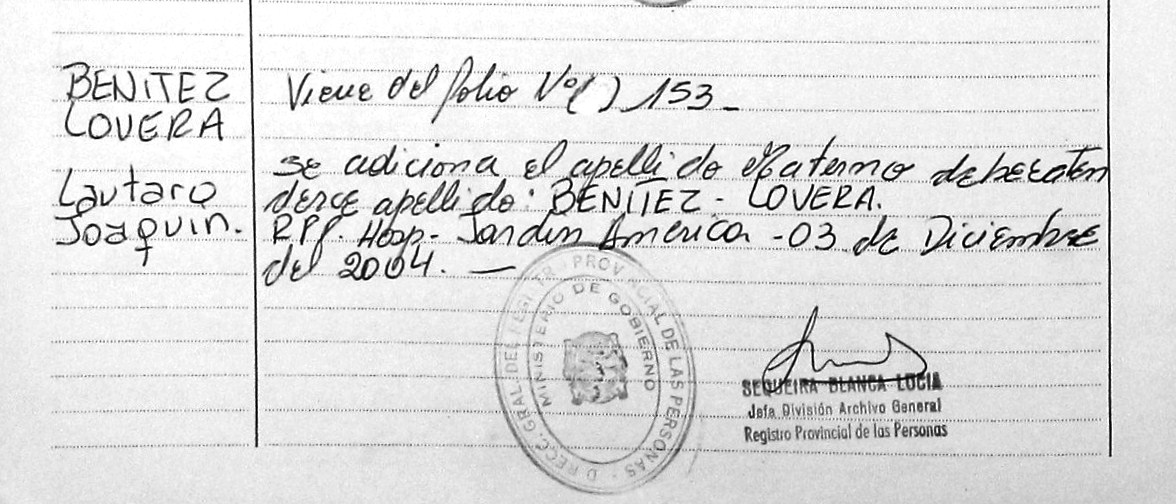 BENITEZ
LOVERA
Lautaro
Joaquín.
Viene del folio Nº( ) 153_
se adiciona el apellido Materno debe
derce apellido: BENITEZ - LOVERA.
RPP. Hosp- Jardín América - 03 de Diciembre
del 2004. —
DIRECC. GRAL DEL REGISTR. PROVINCIAL DE LAS PERSONAS
MINISTERIO DE GOBIERNO
SEQUEIRA BLANCA LUCIA
Jefa División Archivo General
Registro Provincial de las Personas